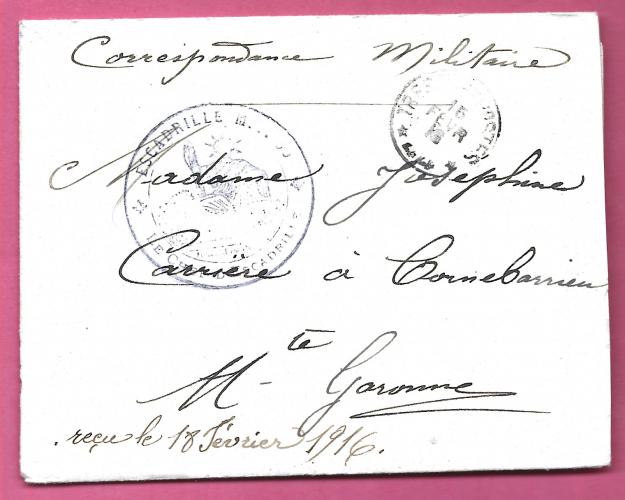 Correspondance Militaire
ESCADRILLE M.
LE CHEF D'ESCADRILLE
TRESOR ET POSTES
15
FEVR
16
Madame Josephine
Carrière à Cornebarrieu
Hte Garonne
reçu le 18 Février 1916.